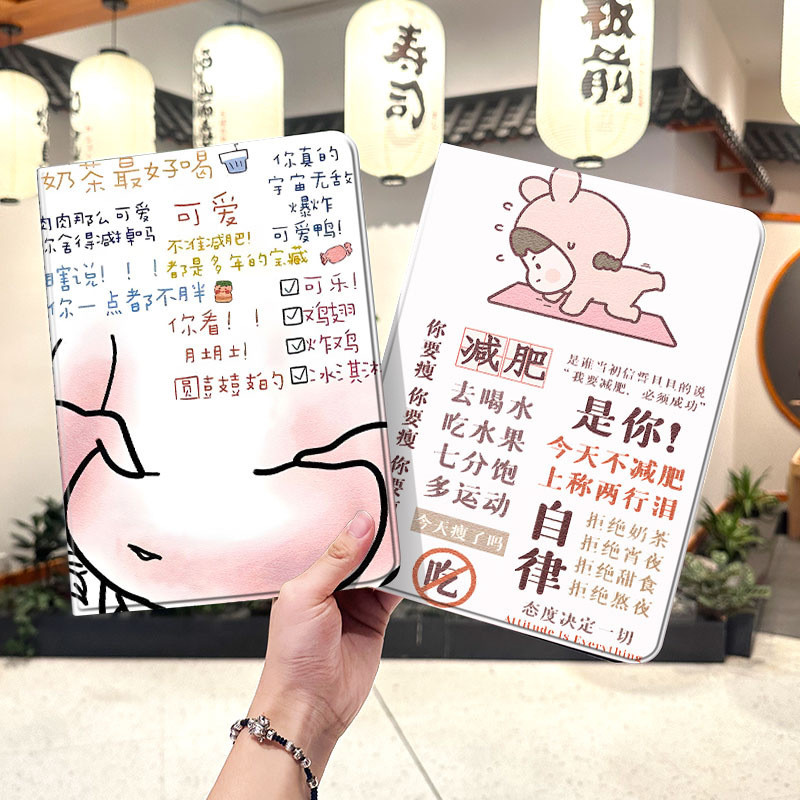 寿司
板前
奶茶最好喝
肉肉那么可爱
你舍得减掉吗
瞎说！！！
你一点都不胖
可爱
不准减肥！
都是多年的宝藏
你看！！
圆
的
你真的
宇宙无敌
爆炸
可爱鸭！
可乐！
鸡翅
炸鸡
冰淇淋
你要瘦 你要瘦 你要瘦
减肥
去喝水
吃水果
七分饱
多运动
今天瘦了吗
吃
是谁当初信誓旦旦的说
“我要减肥，必须成功”
是你！
今天不减肥
上称两行泪
自律
拒绝奶茶
拒绝宵夜
拒绝甜食
拒绝熬夜
态度决定一切
Attitude is Everything